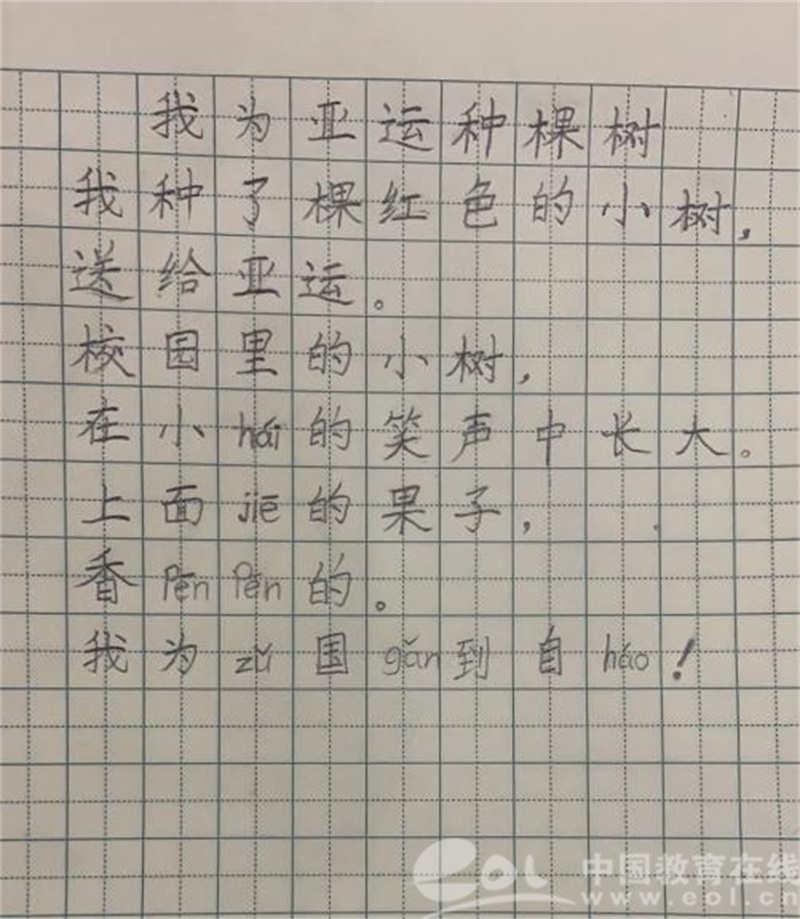 我为亚运种棵树
我种了棵红色的小树,
送给亚运。
校园里的小树,
在小hái的笑声中长大。
上面jiē的果子,
香Pēn Pēn的。
我为zǔ国gǎn到自háo!
eoL 中国教育在线
www.eol.cn